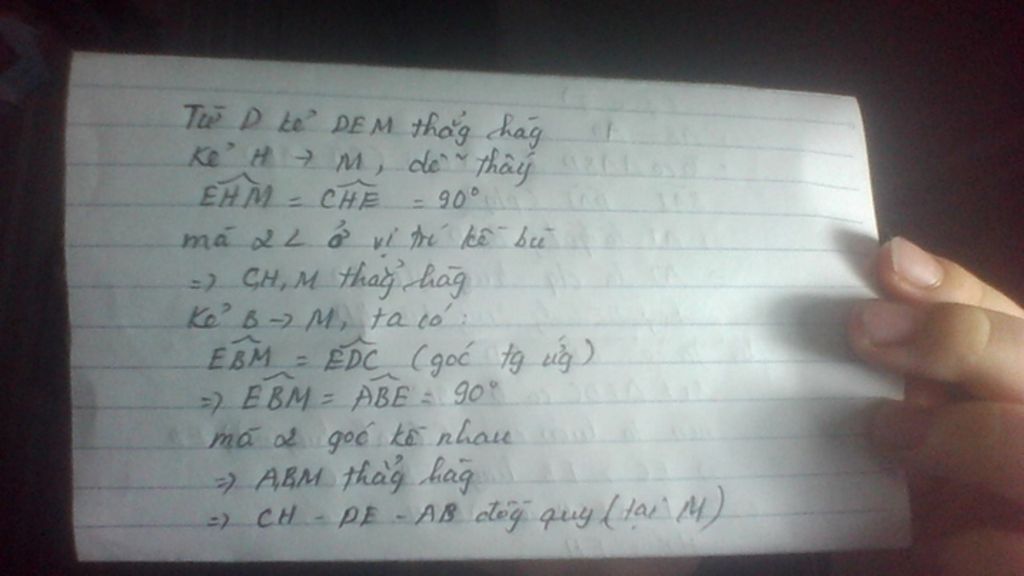 Từ D kẻ DEM thẳg hàg
Kẻ H → M, dễ thấy
EHM = CHE = 90°
mà 2 < ở vị trí kề bù
=> C,H,M thẳg hàg
Kẻ B → M, ta có:
EBM = EDC (góc tg ứg)
=> EBM = ABE = 90°
mà 2 góc kề nhau
=> A,B,M thẳg hàg
=> CH - DE - AB đồg quy (tại M)